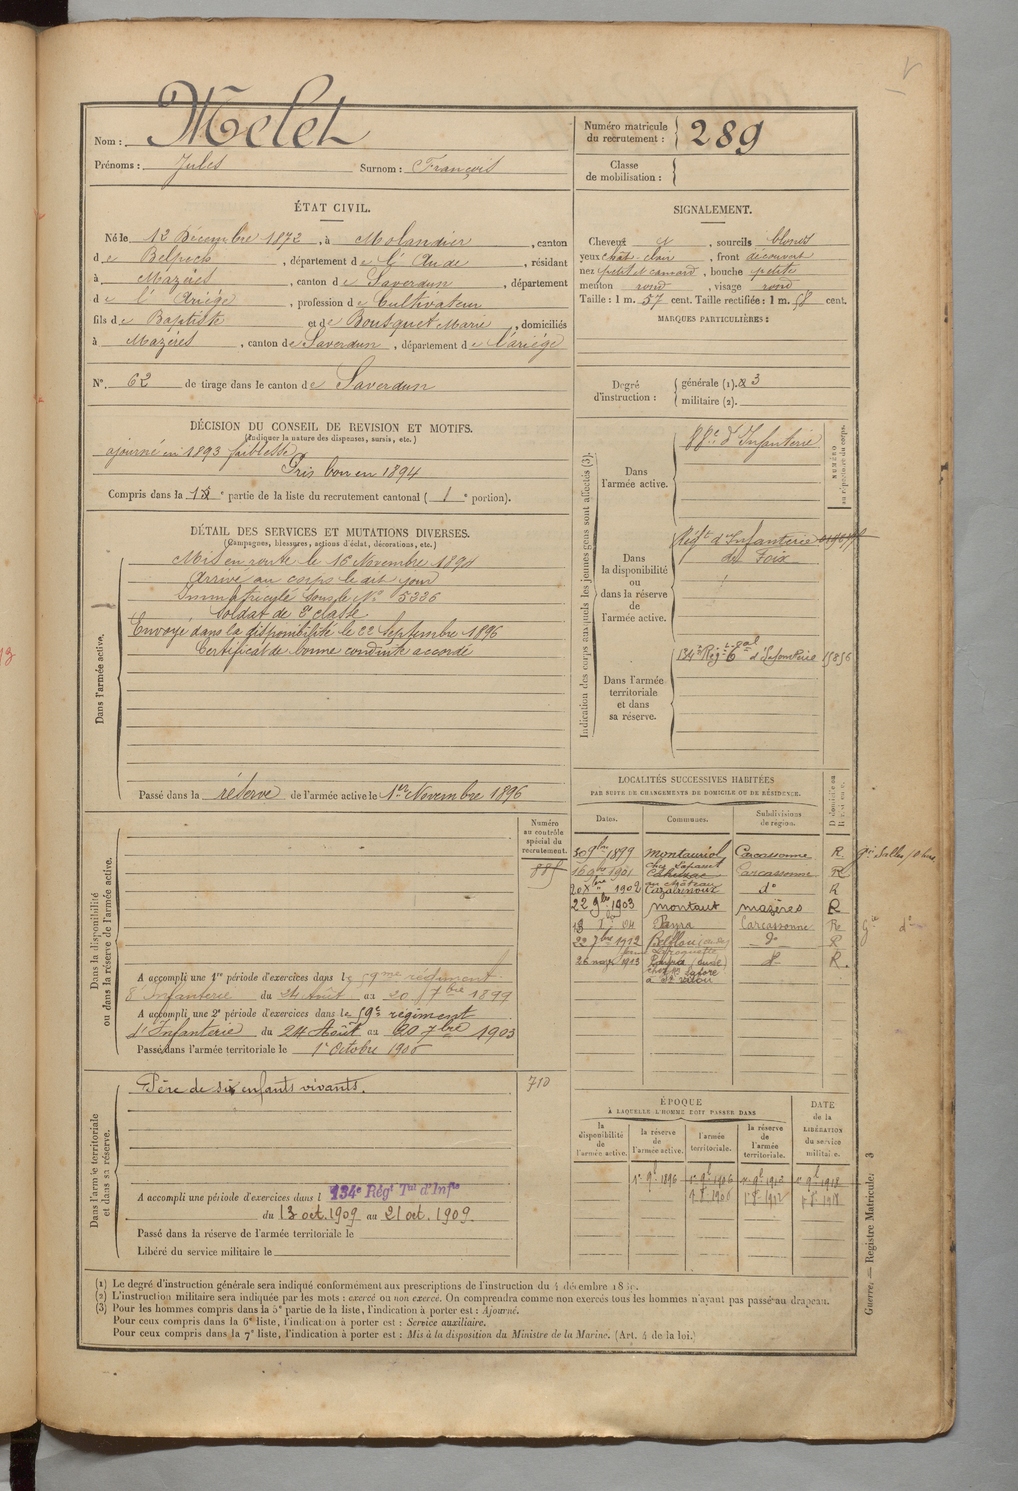 Nom : Melet
Prénoms : Jules Surnom : François
Numéro matricule du recrutement : 289
Classe de mobilisation :
ÉTAT CIVIL.
Né le 12 Décembre 1872, à Molandier, canton
de Belpech, département de l'Aude, résidant
à Mazères, canton de Saverdun, département
de l'Ariège, profession de Cultivateur
fils de Baptiste et de Bousquet Marie, domiciliés
à Mazères, canton de Saverdun, département de l'ariège
N° 62 de tirage dans le canton de Saverdun
SIGNALEMENT.
Cheveux d, sourcils blonds
yeux chât. clair, front découvert
nez petit et camard, bouche petite
menton rond, visage rond
Taille : 1 m. 57 cent. Taille rectifiée : 1 m. 58 cent.
MARQUES PARTICULIÈRES :
Degré d'instruction : générale (1). 3
militaire (2).
DÉCISION DU CONSEIL DE REVISION ET MOTIFS.
(Indiquer la nature des dispenses, sursis, etc.)
ajourné en 1893 faiblesse
Pris bon en 1894
Compris dans la 1e partie de la liste du recrutement cantonal (1e portion).
DÉTAIL DES SERVICES ET MUTATIONS DIVERSES.
(Campagnes, blessures, actions d'éclat, décorations, etc.)
Dans l'armée active.
Mis en route le 16 Novembre 1894
Arrivé au corps le dit jour
Immatriculé sous le N° 5336
Soldat de 2e classe
Envoyé dans la disponibilité le 22 Septembre 1896
Certificat de bonne conduite accordé
Passé dans la réserve de l'armée active le 1er Novembre 1896
Indication des corps auxquels les jeunes gens sont affectés (3).
NUMÉRO au répertoire du corps.
Dans l'armée active.
d'Infanterie
Dans la disponibilité ou dans la réserve de l'armée active.
Régt d'Infanterie
de Foix
Dans l'armée territoriale et dans sa réserve.
134e Rég. d'Infanterie 15856
LOCALITÉS SUCCESSIVES HABITÉES
PAR SUITE DE CHANGEMENTS DE DOMICILE OU DE RÉSIDENCE.
Dates. Communes. Subdivisions de région. D domicile ou R résidence.
30 9bre 1899 Montauriol Carcassonne R
1901 Carcassonne R
20 Xbre 1902 Cazalrenoux do R
22 9bre 1903 montaut mazères R
04 Payra Carcassonne R
22 7bre 1912 do R
26 1913 do R
Dans la disponibilité ou dans la réserve de l'armée active.
Numéro au contrôle spécial du recrutement.
A accompli une 1re période d'exercices dans le 59me régiment
d'Infanterie du 24 Août au 20 7bre 1899
A accompli une 2e période d'exercices dans le 59e régiment
d'Infanterie du 24 Août au 20 7bre 1903
Passé dans l'armée territoriale le 1er Octobre 1906
Dans l'armée territoriale et dans sa réserve.
Père de six enfants vivants. 710
A accompli une période d'exercices dans l 134e Régt Tal d'Infie
du 13 oct. 1909 au 21 oct. 1909.
Passé dans la réserve de l'armée territoriale le
Libéré du service militaire le
ÉPOQUE
À LAQUELLE L'HOMME DOIT PASSER DANS
la disponibilité de l'armée active. la réserve de l'armée active. l'armée territoriale. la réserve de l'armée territoriale. DATE de la LIBÉRATION du service militaire.
(1) Le degré d'instruction générale sera indiqué conformément aux prescriptions de l'instruction du 4 décembre
(2) L'instruction militaire sera indiquée par les mots : exercé ou non exercé. On comprendra comme non exercés tous les hommes n'ayant pas passé au drapeau.
(3) Pour les hommes compris dans la 5e partie de la liste, l'indication à porter est : Ajourné.
Pour ceux compris dans la 6e liste, l'indication à porter est : Service auxiliaire.
Pour ceux compris dans la 7e liste, l'indication à porter est : Mis à la disposition du Ministre de la Marine. (Art. 4 de la loi.)
Guerre. — Registre Matricule. 3